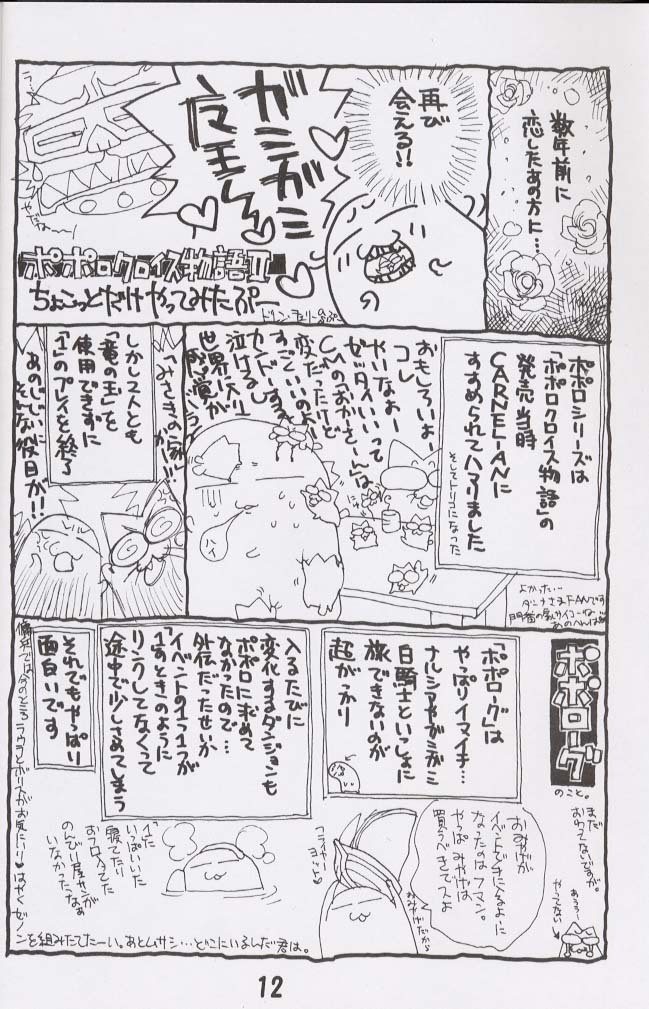 数年前に
恋したあの方に…
再び
会える!!
ガミガミ
魔王
ポポロクロイス物語II
ちょこっとだけやってみたぷー
ポポロシリーズは
「ポポロクロイス物語」の
発売当時
CARNELIANに
すすめられてハマりました
そしてトリコになった
おもしろいよー
コレ
やいなよー
ゼッタイいいって
CMの「おかーさーん」は
変だったけど
すごくいいのよー
カンドーするよ
泣けるし
世界に入り
「みさきの家」
かは!!
しかし2人とも
「竜の玉」を
使用できずに
「1」のプレイを終了
あのじじいに
そんな役目が!!
ハイ
よかった…
ポポローグ
のこと。
まだ
おわってないですが。
やってない
「ポポローグ」は
やっぱりイマイチ…
ナルシャやガミガミ
白騎士といっしょに
旅できないのが
超がっかり
入るたびに
変化するダンジョンも
ポポロに求めて
なかったので…
外伝だったせいか
イベントの1つ1つが
「1」のときのように
リンクしてなくって
途中で少しさめてしまう
それでもやっぱり
面白いです
おみやげが
イベントで手に入るように
なったのはフマン。
やっぱみやげは
買うべきでスよ
おみやげだから
「1」に
いっぱいいた
寝てたり
おフロ入ってた
のんびり屋サンが
いなかったなあ
はやくゼノンを組みたてたーい。あとムサシ…どこにいるんだ君は。
12